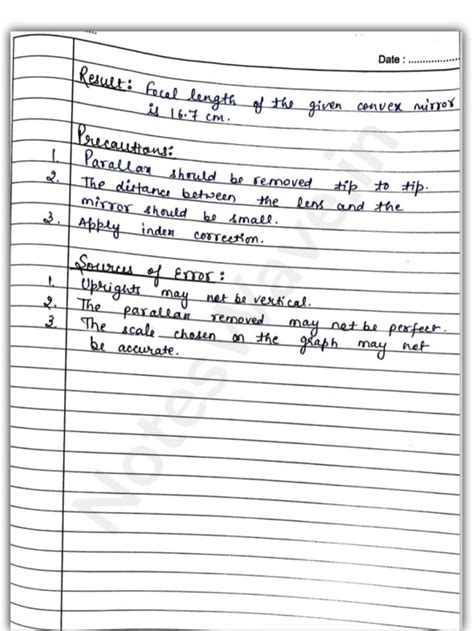 Date : ..................
Result: Focal length of the given convex mirror
is 16.7 cm.
Precautions:
1. Parallax should be removed tip to tip.
2. The distance between the lens and the
mirror should be small.
3. Apply index correction.
Sources of Error:
1. Uprights may not be vertical.
2. The parallax removed may not be perfect.
3. The scale chosen on the graph may not
be accurate.
NotesWave.in